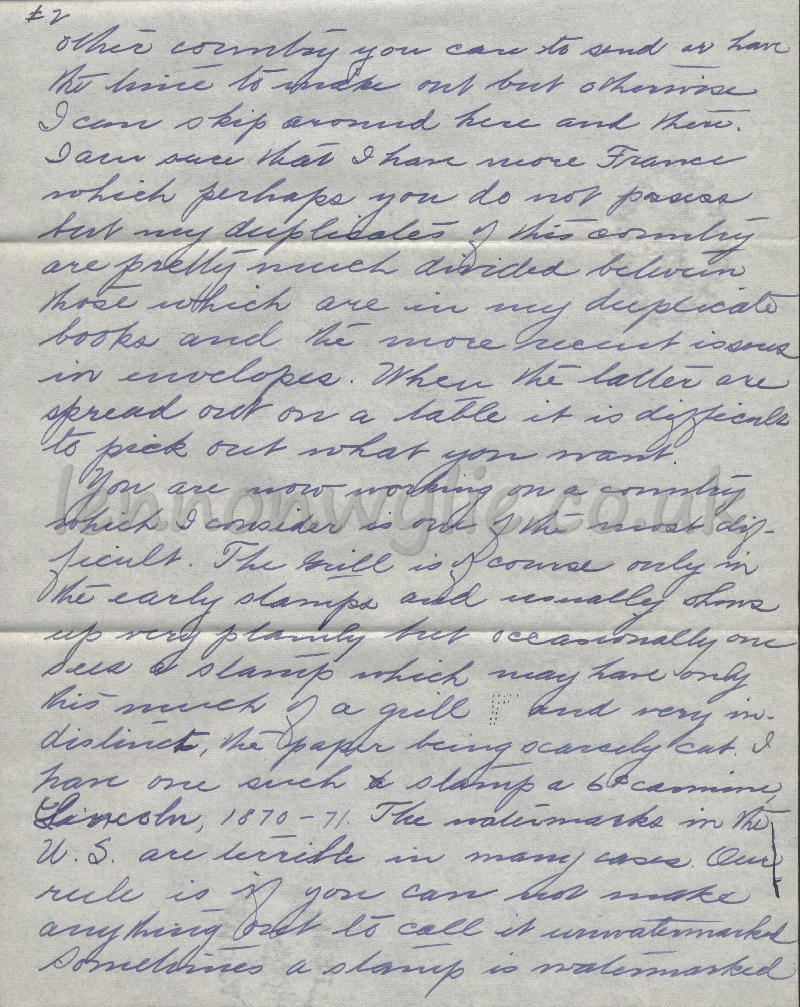 #2
other country you care to send or have
the time to make out but otherwise
I can skip around here and there.
I am sure that I have more France
which perhaps you do not posess
but my duplicates of this country
are pretty much divided between
those which are in my duplicate
books and the more recent issues
in envelopes. When the latter are
spread out on a table it is difficult
to pick out what you want.
You are now working on a country
which I consider is one of the most dif-
ficult. The grill is of course only in
the early stamps and usually shows
up very plainly but occasionally one
sees a stamp which may have only
this much of a grill and very in-
distinct, the paper being scarsely cut. I
have one such a stamp a 6¢ carmine,
Lincoln, 1870-71. The watermarks in the
U.S. are terrible in many cases. Our
rule is if you can not make
anything out to call it unwatermarked
Sometimes a stamp is watermarked
lennonwylie.co.uk